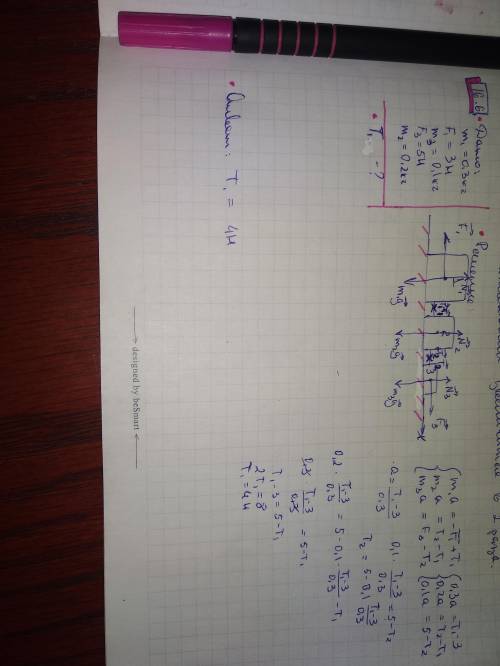 16.6 • Дано:
m₁ = 0,3 кг
F₁ = 3Н
m₃ = 0,1 кг
F₃ = 5Н
m₂ = 0,2 кг
• T₁ - ?
• Решение:
F₁ N₁ N₂ N₃ F₃ x
m₁g m₂g m₃g
{ m₁a = -F₁ + T₁ { 0,3a = T₁ - 3
{ m₂a = T₂ - T₁ { 0,2a = T₂ - T₁
{ m₃a = F₃ - T₂ { 0,1a = 5 - T₂
• a = T₁-3 / 0,3 0,1 · T₁-3 / 0,3 = 5 - T₂
T₂ = 5 - 0,1 T₁-3 / 0,3
0,2 · T₁-3 / 0,3 = 5 - 0,1 · T₁-3 / 0,3 - T₁
0,3 T₁-3 / 0,3 = 5 - T₁
T₁ - 3 = 5 - T₁
2T₁ = 8
T₁ = 4Н
• Ответ: T₁ = 4Н
designed by beSmart